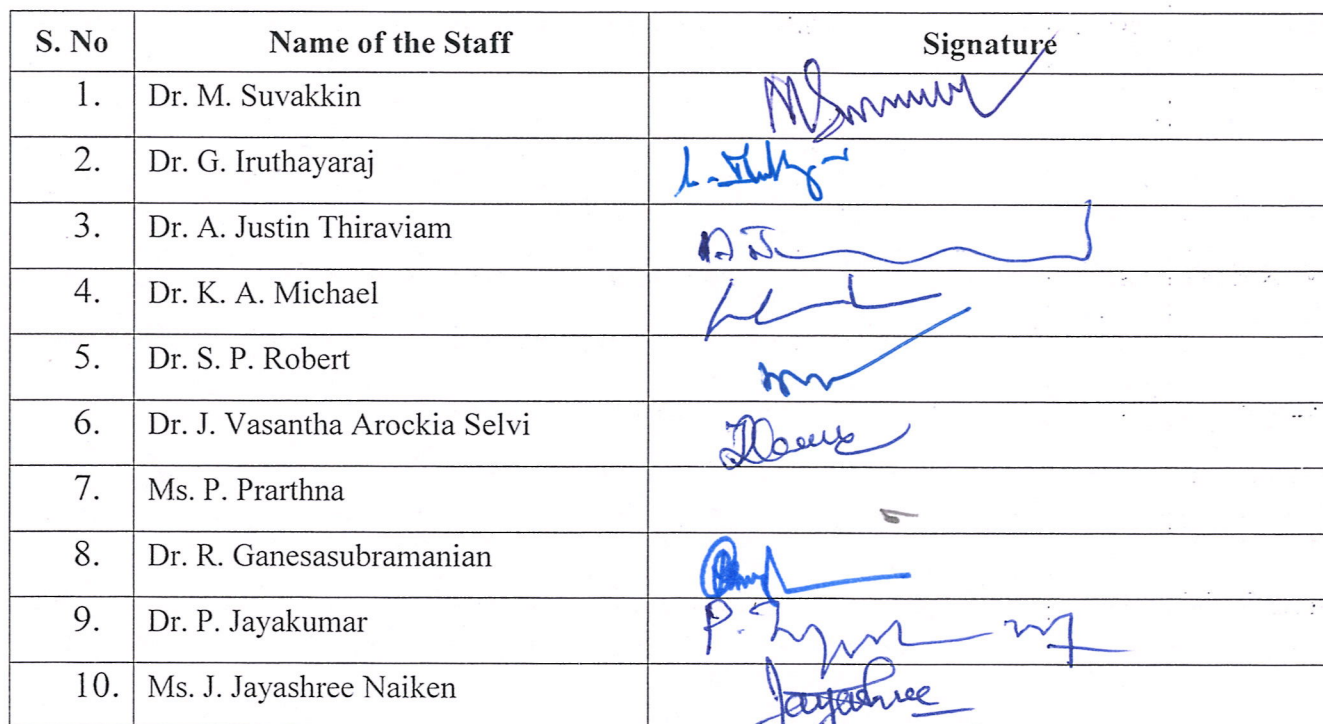 S. No Name of the Staff Signature
1. Dr. M. Suvakkin
2. Dr. G. Iruthayaraj
3. Dr. A. Justin Thiraviam
4. Dr. K. A. Michael
5. Dr. S. P. Robert
6. Dr. J. Vasantha Arockia Selvi
7. Ms. P. Prarthna
8. Dr. R. Ganesasubramanian
9. Dr. P. Jayakumar
10. Ms. J. Jayashree Naiken Jayashree